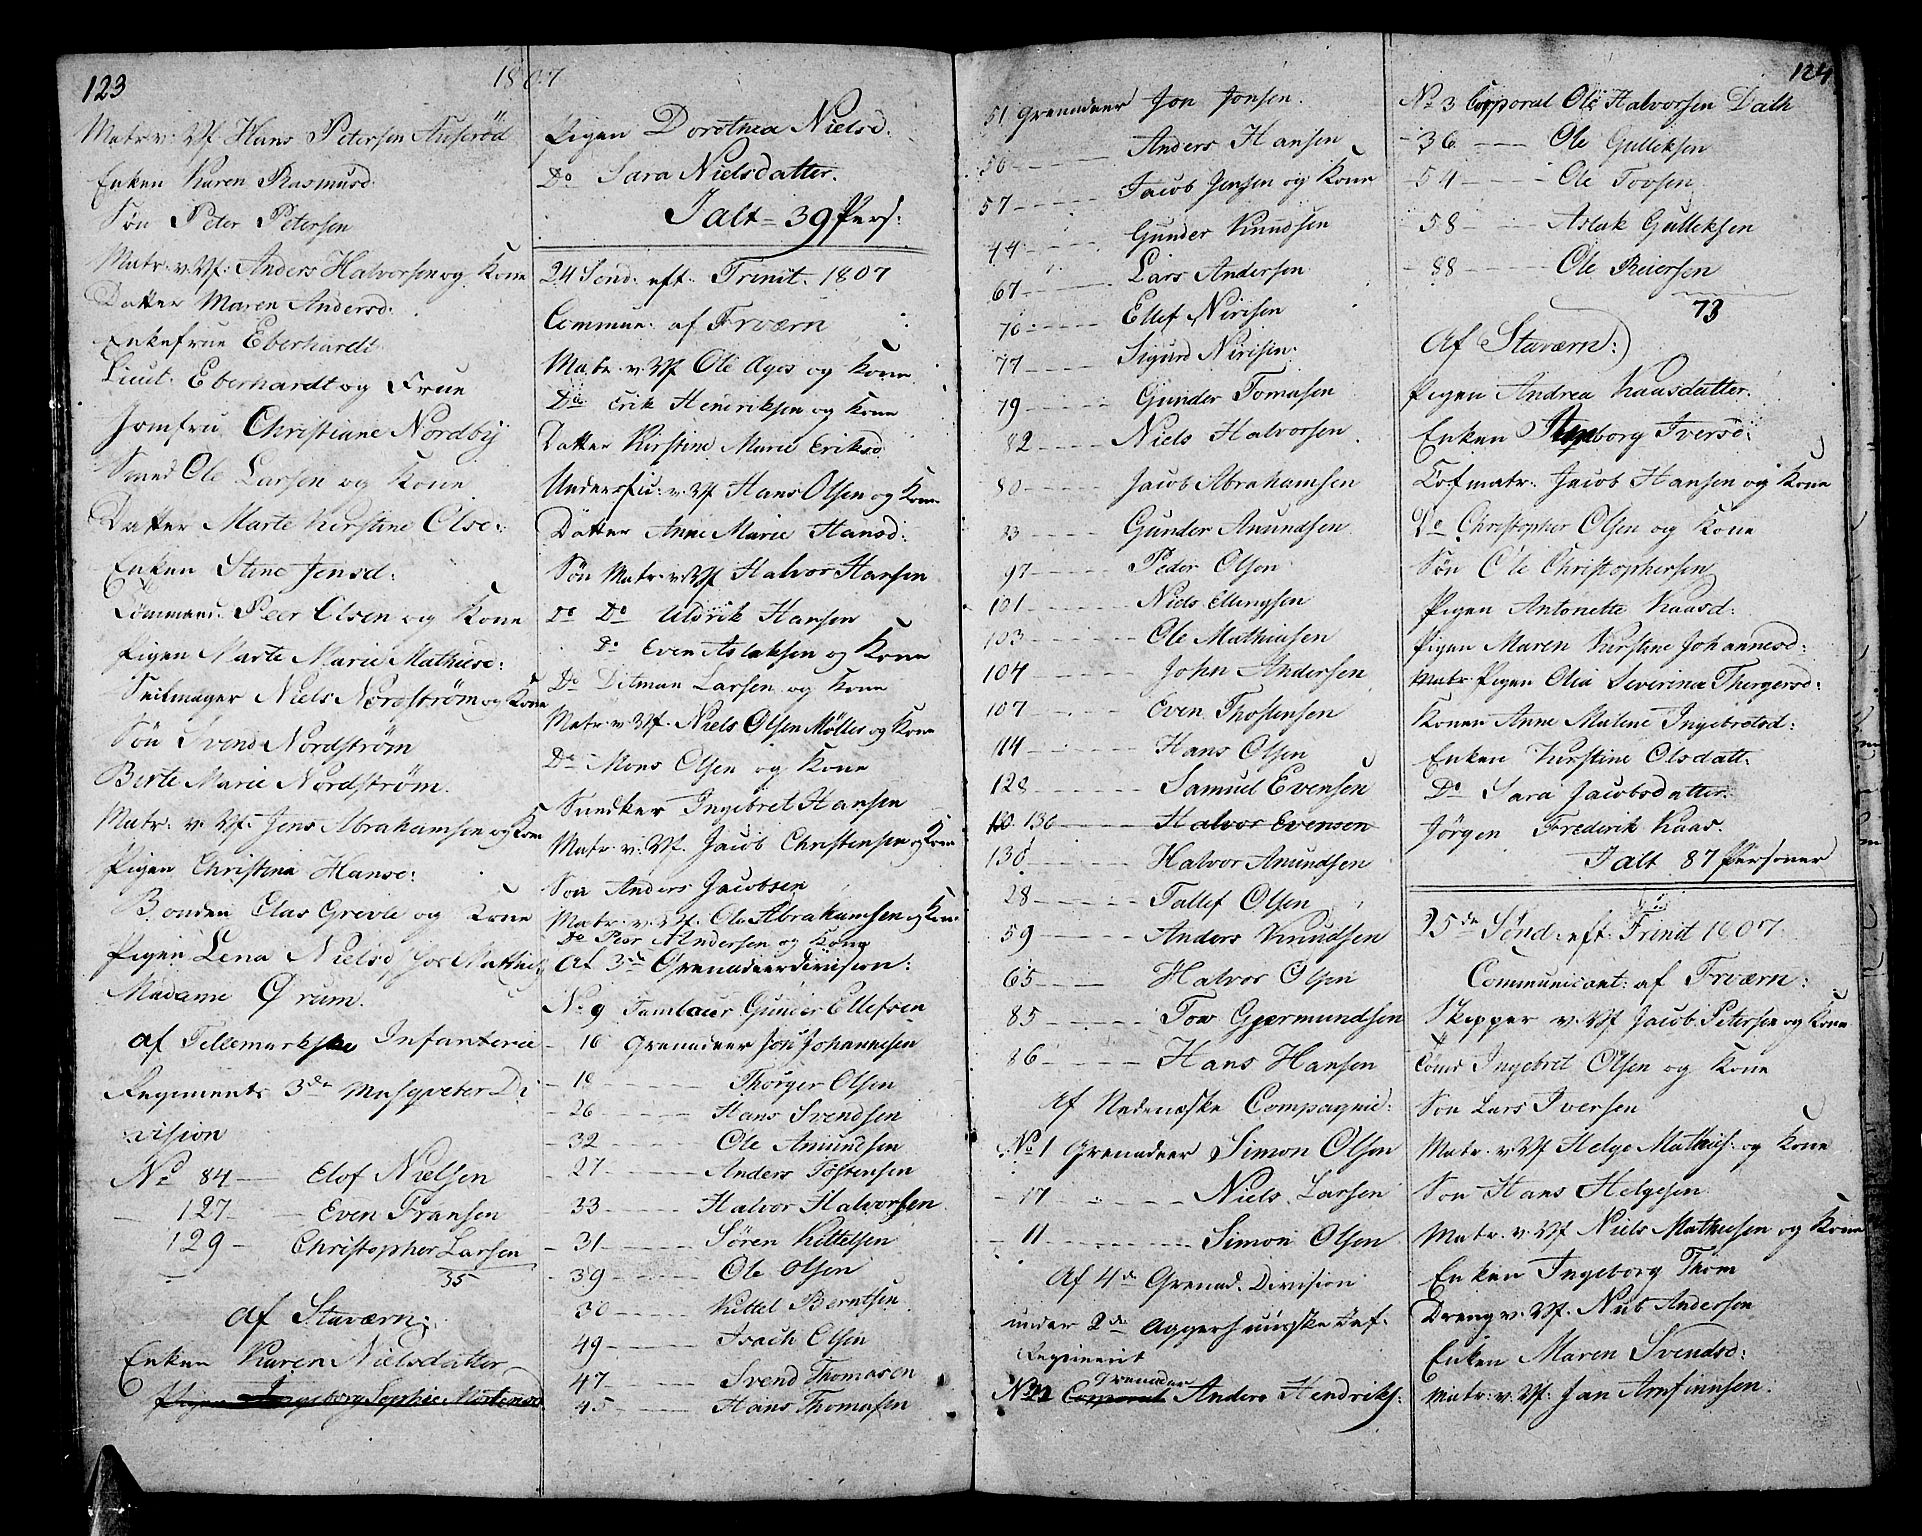 123
1807
Matr v: Vf Hans Petersen Auserød
Enken Karen Rasmusd:
Søn Peter Petersen
Matr: v. Vf: Anders Halvorsen og Kone
Datter Maren Andersd:
Enkefrue Eberhardt
Lieut: Eberhardt og Frue
Jomfru Christiane Nordbÿ
Smed Ole Larsen og Kone
Datter Marte Kirstine Olsd:
Enken Stine Jensd:
Tømmermd: Peer Olsen og Kone
Pigen Marte Marie Mathisd:
Seilmager Niels Nordstrøm og Kone
Søn Svend Nordstrøm
Berte Marie Nordstrøm.
Matr: v. Vf: Jens Abrahamsen og Kone
Pigen Christina Hansd:
Bonden Clas Grevle og Kone
Pigen Lena Nielsd,
Madame Ørum.
af Tellemarkske Infanterie
Regiments 3de Musqveter Di
vision
No 84 — Elof Nielsen
127 — Even Fransen
129 — Christopher Larsen
35
af Staværn:
Enken Karen Nielsdatter
Pigen Ingeborg Sophie Mortensd
Pigen Dorothea Nielsd:
Do Sara Nielsdatter.
Ialt - 39 Pers:
24 Sønd: eft: Trinit. 1807
Commun: af Frværn
Matr. v. Vf Ole Agos og Kone
Do Erik Henriksen og Kone
Datter Kirstine Marie Eriksd
Undersku: v. Vf Hans Olsen og Kone
Datter Anne Marie Hansd:
Søn Matr. v. Vf Halvor Hansen
Do Do Uldrik Hansen
Do Even Aslaksen og Kone
Do Ditman Larsen og Kone
Matr. v. Vf. Niels Olsen Møller og Kone
Do Mons Olsen og Kone
Snedker Ingebret Hansen
Matr v. Vf. Jacob Christensen og Kone
Søn Anders Jacobsen
Matr. v. Vf. Ole Abrahamsen og Kone
Do Peer Andersen og Kone
Af 3de Grenadeerdivision:
No 9 Tambour Gunder Ellefsen
- 16 Grenadeer Jon Johannesen
- 19 Thorger Olsen
- 26 Hans Svendsen
- 32 Ole Amundsen
- 27 Anders Tostensen
- 33 Halvor Halvorsen
- 31 Søren Kittelsen
- 39 Ole Olsen
30 Kittel Berntsen
49 Isach Olsen
47 Svend Thomasen
45 Hans Thomasen
51 Grenadeer Jon Jonsen.
56 Anders Hansen
57 Jacob Jensen og Kone
44 Gunder Knudsen
67 Lars Andersen
70 Ellef Nirisen
77 Sigurd Nirisen.
79 Gunder Tomasen
82 Niels Halvorsen
80 Jacob Abrahamsen
93 Gunder Anundsen
97 Peder Olsen
101 Niels Ellingsen
103 Ole Mathiasen
104 John Andersen
107 Even Thostensen
114 Hans Olsen
128 Samuel Evensen
136 Halvor Evensen
130 Halvor Amundsen
28 Tallef Olsen
59 Anders Knudsen
65 Halvor Olsen
85 Tow Gjermundsen
86 Hans Hansen
af Nedenæske Compagnie:
No 1 Grenadeer Simon Olsen
- 17 Niels Larsen
- 11 Simon Olsen
Af 4de Grenad. Division
under 2de Aggershuuske Inf:
Regiment
Grenadeer
No 22 Corporal Anders Hendriks:
124
No 3 Corporal Ole Halvorsen Dalh
- 36 Ole Gulleksen
54 Ole Tovsen
58 Aslak Gulleksen
- 88 Ole Reiersen
73
Af Staværn:
Pigen Andrea Kaasdatter.
Enken Ingeborg Iversd:
Tofmatr: Jacob Hansen og Kone
Do Christopher Olsen og Kone
Søn Ole Christophersen
Pigen Antonette Kaasd:
Pigen Maren Kirstine Johannesd:
Matr Pigen Olea Severinea Thergersd:
Konen Anne Malene Ingebretsd:
Enken Kirstine Olsdatt:
Do Sara Jacobsdatter.
Jørgen Frederik Kaas.
Ialt 87 Personer
25de Sønd: eft: Trinit 1807.
Communicant: af Frværn:
Skipper v. Vf Jacob Petersen og Kone
Ingebret Olsen og Kone
Søn Lars Iversen
Matr. v. Vf Helge Mathis: og Kone
Søn Hans Helgesen
Matr. v. Vf. Niels Mathiesen og Kone
Enken Ingeborg Thom
Dreng v. Vf. Niels Andersen
Enken Maren Svendsd:
Matr: v. Vf. Jan Arnfinnsen.